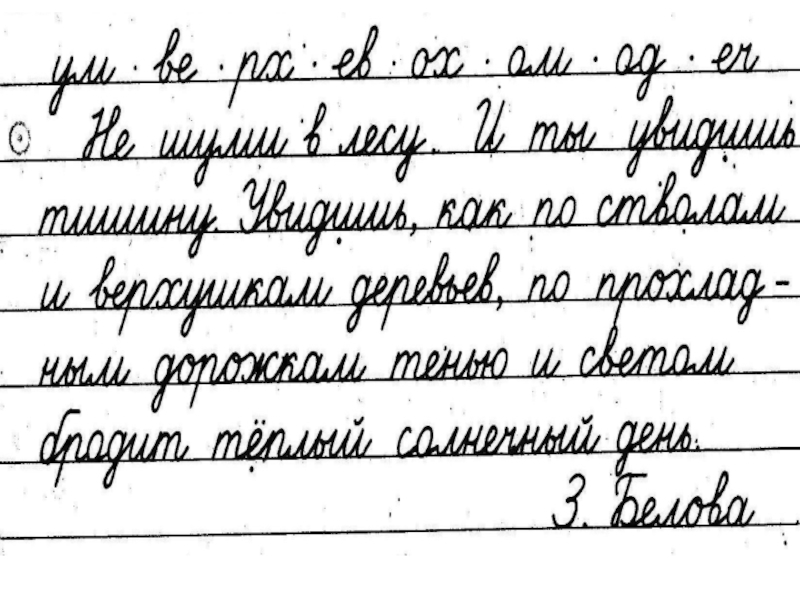 ум · ве · рх · ев · ох · ом · од · еч
Не шуми в лесу. И ты увидишь
тишину. Увидишь, как по стволам
и верхушкам деревьев, по прохлад-
ным дорожкам тенью и светом
бродит тёплый солнечный день.
З. Белова